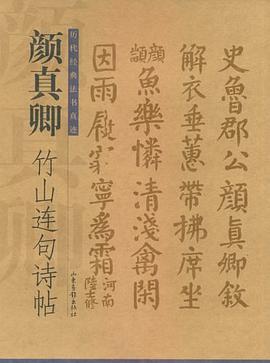 史魯郡公顏真卿敘
解衣垂蕙帶拂席坐
顏顓魚樂憐清淺禽閑
因雨履穿寧爲霜河南陸士修
历代经典法书真迹
颜真卿
竹山连句诗帖